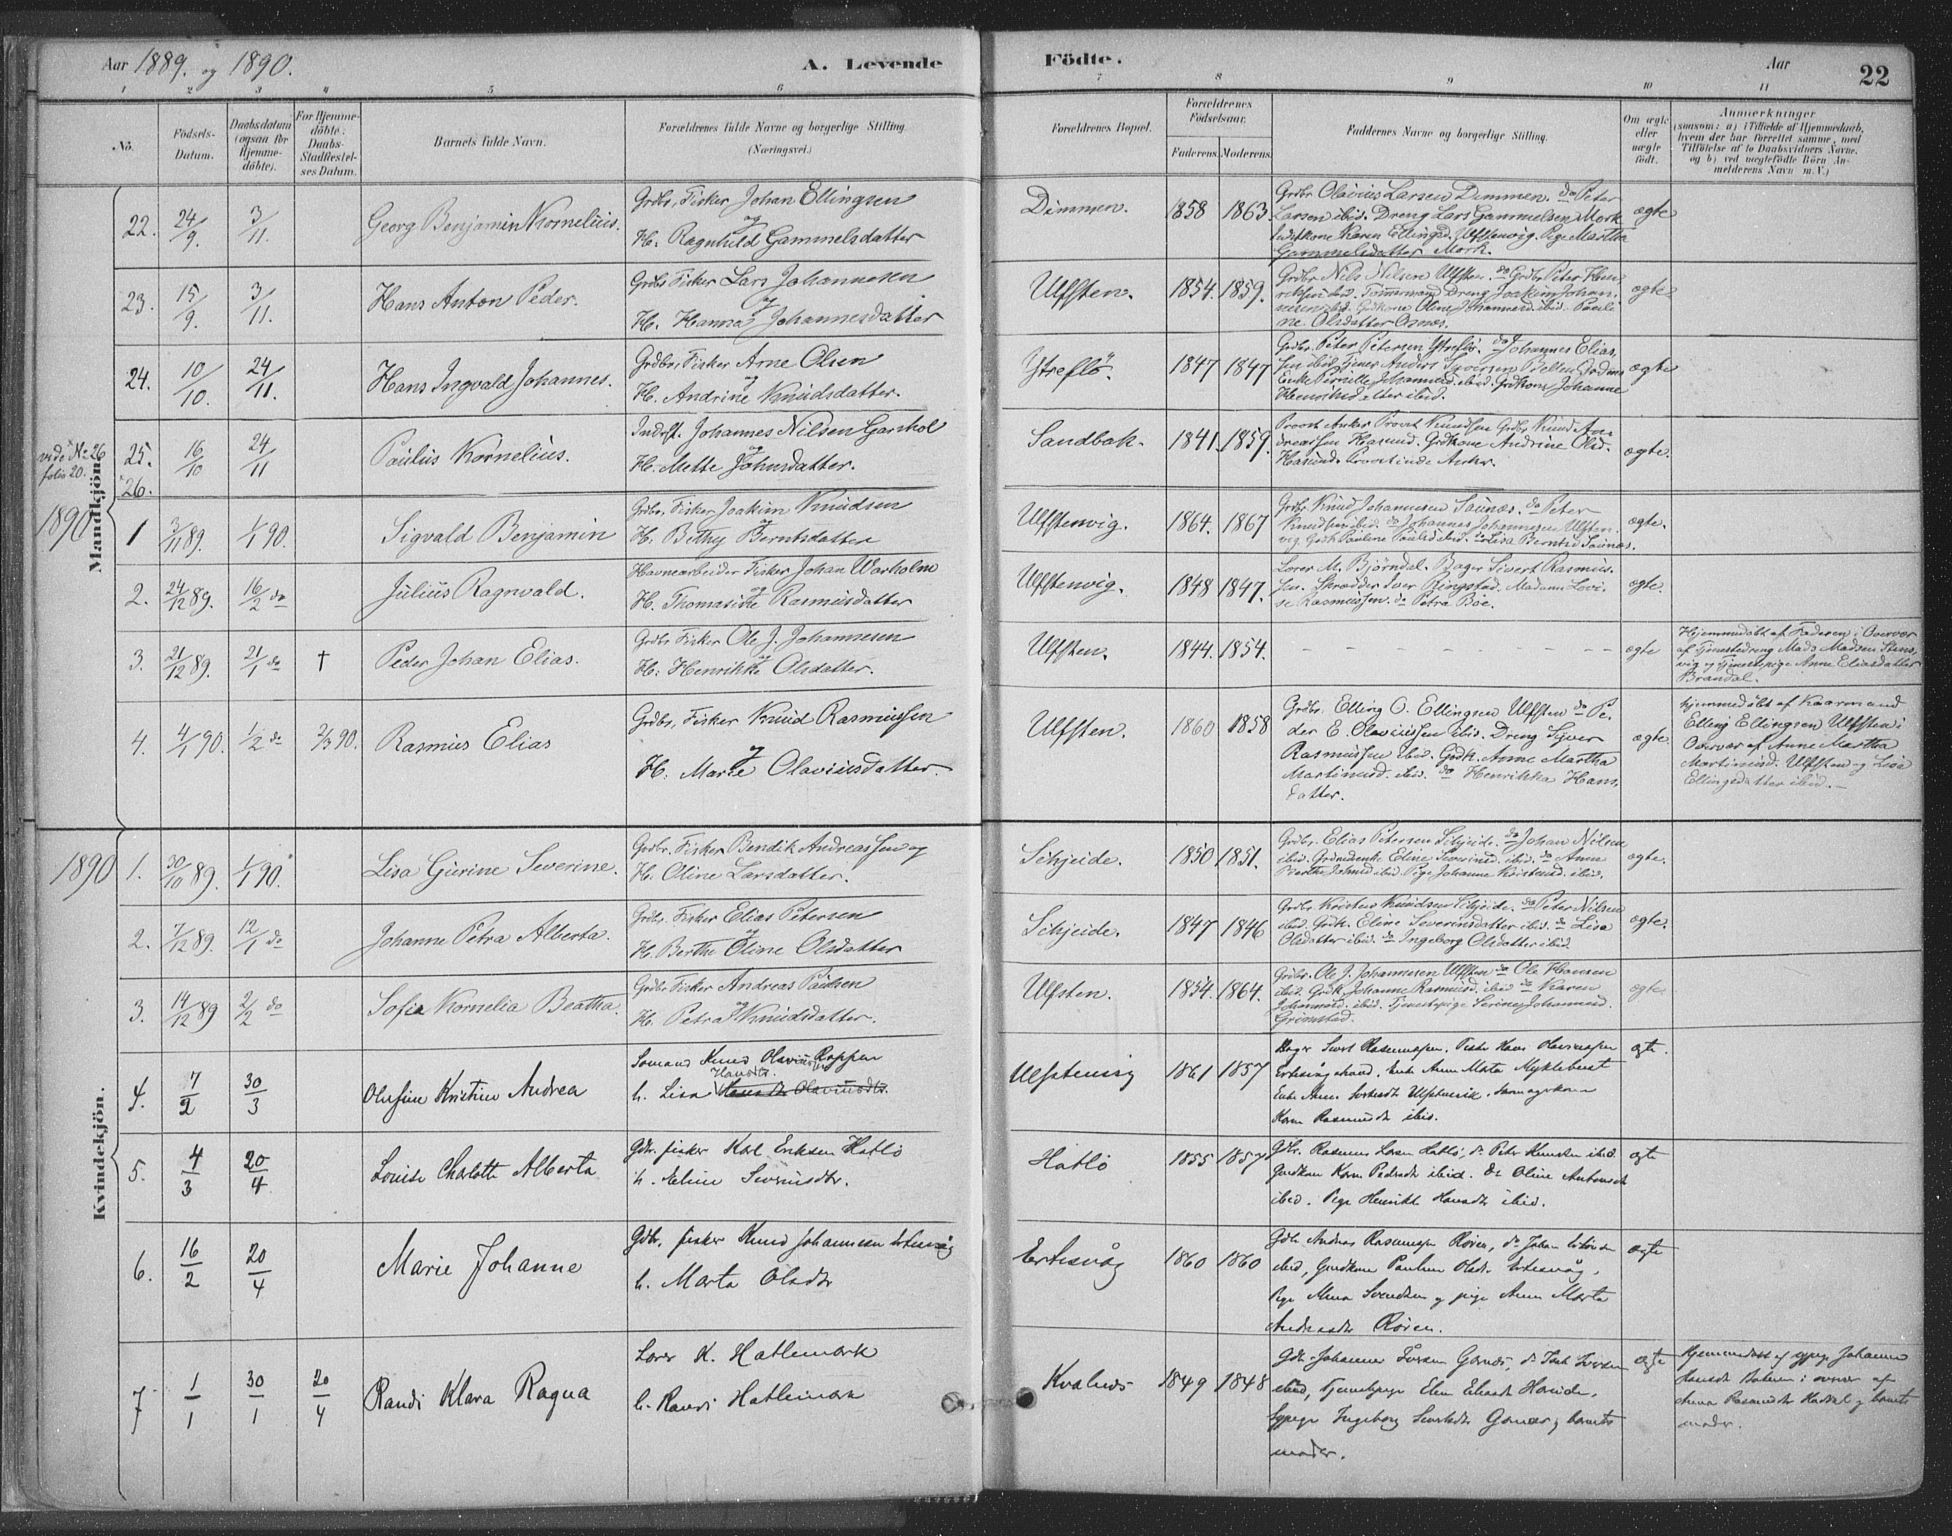 Aar 1889. og 1890.
A. Levende
Födte.
Aar
22
1 2 3 4 5 6 7 8 9 10 11
No.
Födsels-
Datum.
Daabsdatum
(ogsaa for
Hjemme-
döbte).
For Hjemme-
döbte:
Daabs-
Stadfæstel-
ses Datum.
Barnets fulde Navn.
Forældrenes fulde Navne og borgerlige Stilling.
(Næringsvei.)
Forældrenes Bopæl.
Forældrenes
Födselsaar.
Faderens. Moderens.
Faddernes Navne og borgerlige Stilling.
Om ægte
eller
uægte
födt.
Anmerkninger
(saasom: a) i Tilfælde af Hjemmedaab,
hvem der har forrettet samme, med
Tilföielse af to Daabsvidners Navne.
og b) ved uægtefödte Börn An-
melderens Navn m. V.)
Mandkjön.
22. 24/9. 3/11. Georg Benjamin Kornelius.
Grdbr. Fisker Johan Ellingsen
og
H. Ragnhild Gammelsdatter
Dimmen. 1858 1863.
Grdbr. Olavius Larsen Dimmen. do Peter
Larsen ibid. Dreng Lars Gammelsen Mork
Ulfstenvig. Pige Martha
Gammelsdatter Mork.
ægte
23. 15/9. 3/11. Hans Anton Peder.
Grdbr. Fisker Lars Johannesen
og
H. Hanna Johannesdatter
Ulfsten. 1854. 1859.
Grdbr. Nils Nilsen Ulfsten. do Grdbr. Peter Hen-
riksen ibid. Tømmermand Dreng Joakim Johan-
nesen ibid. Grdkone Oline Johannesd. ibid. Pauli-
ne Olsdatter Osnæs.
ægte
24. 10/10. 24/11. Hans Ingvald Johannes.
Grdbr. Fisker Arne Olsen
og
H. Andrine Knudsdatter.
Ytreflö. 1847 1847
Grdbr. Peter Petersen Ytreflö. do Johannes Elias-
sen ibid. Tjener Anders Syversen
Enke Pernille Johannesd. ibid. Grdkone Johanne
Henriksdatter ibid.
ægte
vide No 26
folio 20.
25. 16/10 24/11 Paulus Kornelius.
Inderst. Johannes Nilsen Garshol
og
H. Mette Johnsdatter.
Sandbak. 1841. 1859.
Provst Anker Provst Knudsen Grdbr. Knud An-
dreassen Hasund. Grdkone Andrine Olsd.
Hasund. Provstinde Anker.
ægte.
26.
1890
1 3/11 89. 1/1 90. Sigvald Benjamin
Grdbr. Fisker Joakim Knudsen
og
H. Bethy Berntsdatter
Ulfstenvig. 1864. 1867
Grdbr. Knud Johannesen Saunæs. do Peter
Knudsen ibid. do Johannes Johannesen Ulfsten-
vig. Grdk. Pauline Paulsd. ibid. do Lisa Berntsd. Saunæs.
ægte.
2. 24/12 89. 16/2 do Julius Ragnvald.
Havnearbeider Fisker Johan Warholm
og
H. Thomasine Rasmusdatter
Ulfstenvig. 1848 1847.
Lærer M. Bjørndal. Bager Sivert Rasmus-
sen. Skrædder Iver Ringstad. Madam Lovi-
se Rasmussen. do Petra Böe.
ægte.
3. 21/12 89. 21/1 do † Peder Johan Elias.
Grdbr. Fisker Ole J. Johannesen
H. Henrikke Olsdatter.
Ulfsten. 1844. 1854.
– – – – – – – –
ægte
Hjemmedöbt af Faderen i Overvær
af Tjenestedreng Mads Madsen Stens-
vig og Tjenestepige Anne Eliasdatter
Brandal.
4. 4/1 90. 1/2 do 2/3 90. Rasmus Elias
Grdbr. Fisker Knud Rasmussen
og
H. Marie Olaviusdatter.
Ulfsten. 1860 1858
Grdbr. Elling O. Ellingsen Ulfsten do Pe-
der E. Olaviussen ibid. Dreng Syver
Rasmussen ibid. Grdk. Anne Martha
Martinusd. ibid. do Henrikka Hans-
datter.
ægte.
hjemmedöbt af Kaarmand
Elling Ellingsen Ulfsten i
Overvær af Anne Martha
Martinusd. Ulfsten og Lisa
Ellingsdatter ibid.
Kvindekjön.
1890 1. 30/10 89. 1/1 90. Lisa Gurine Severine.
Grdbr. Fisker Bendik Andreassen og
H. Oline Larsdatter.
Schjeide. 1850 1851.
Grdbr. Elias Petersen Schjeide. do Johan Nilsen
ibid. Grdmandenke Eline Severinsd. ibid. do Anne
Berthe Johnsd. ibid. Pige Johanne Kristensd. ibid.
ægte.
2. 7/12 89. 12/1 do Johanne Petra Alberta.
Grdbr. Fisker Elias Petersen
og
H. Berthe Oline Olsdatter
Schjeide. 1847 1846
Grdbr. Kristen Knudsen Schjeide. do Peter Nilsen
ibid. Grdk. Eline Severinsdatter ibid. do Lisa
Olsdatter ibid. do Ingeborg Olsdatter ibid.
ægte.
3. 14/12 89 2/2 do Sofie Kornelia Beatha.
Grdbr. Fisker Andreas Paulsen
og
H. Petra Knudsdatter.
Ulfsten. 1854. 1864.
Grdbr. Ole J. Johannesen Ulfsten do Ole Hansen
ibid. Grdk. Johanne Rasmusd. ibid do Karen
Johannesd. ibid. Tjenestepige Serine Johannesd.
Grimstad.
ægte.
4. 7/2 30/3 Olufine Kristine Andrea
Sømand Knud Olavius Roppen
Hansdtr.
h. Lisa
Ulfstenvig 1861 1857
Bager Sivert Rasmussen. Hans Olavussen
Ertesvåg. Enke Anne Marta Myklebust
Enke Anne Ulfstenvik.
Karen Rasmusdtr ibid.
ægte.
5. 4/3 20/4 Louise Charlotte Alberta
Gdbr. fisker Karl Eriksen Hatlö
h. Eline Severinsdtr.
Hatlö 1855 1857
Gdbr. Rasmus Larsen Hatlö, do Peter Knudsen ibid
Gardkone Karen Pedersdtr ibid. do Oline Antonsdtr
ibid. Pige Henrikke Hansdtr ibid.
ægte
6. 16/2 20/4 Marie Johanne
Gdbr. fisker Knud Johannesen Ertesvåg
h. Marta Olsdtr
Ertesvåg 1860 1860
Gdbr Andreas Rasmussen Røren, do Johan
ibid, Gardkone Pauline Olsdtr Ertesvåg,
Pige Anna Svendsen og pige Anne Marta
Andreasdtr Røren.
ægte
7 1/1 30/1 20/4 Randi Klara Ragna
Lærer K. Hatlemark
h. Randi Hatlemark
Kvalnes 1849 1848
Gdbr. Johannes Iversen Garnes, do Isak Iversen
ibid, Tjenestepige Elen Eliasdtr
Sypige Ingeborg Sivertsdtr Garnes, barnets
moder.
ægte
Hjemmedöbt af sypige Johanne
i overvær af
Anna Rasmusdtr og barnets
moder.